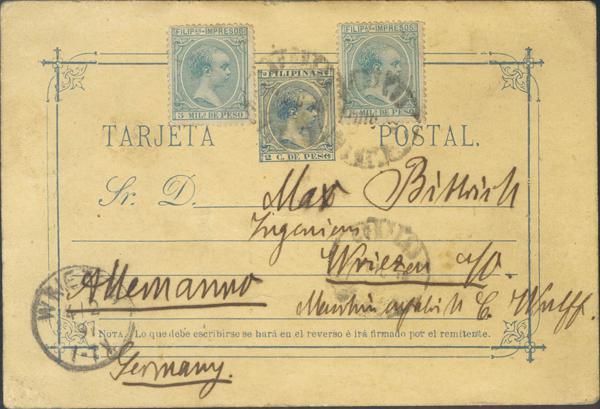 FILIPAS-IMPRESOS
5 MILS DE PESO
FILIPINAS
2 C. DE PESO
FILIPAS-IMPRESOS
5 MILS DE PESO
TARJETA POSTAL.
Sr. D. Max Bittrich
Ingenieur
Wriezen a/O.
Allemanno
Maschinenfabrik C. Wulff.
WRIEZEN
97
NOTA. Lo que debe escribirse se hará en el reverso é irá firmado por el remitente.
Germany.